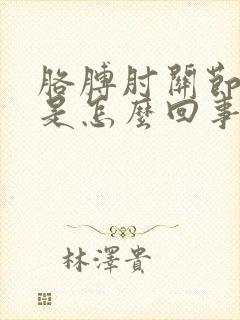 胳膊肘關節
是怎麼回事
林澤貴